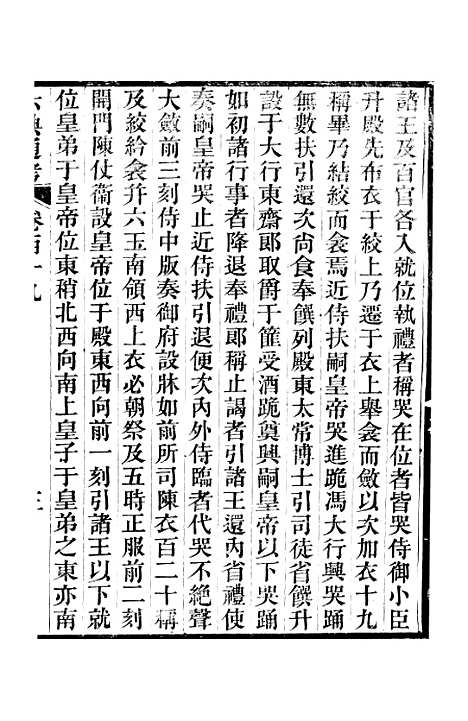 諸王及百官各入就位執禮者稱哭在位者皆哭侍御小臣
升殿先布衣于絞上乃遷于衣上舉衾而斂以次加衣十九
稱畢乃結絞而衾焉近侍扶嗣皇帝哭進跪馮大行興哭踊
無數扶引還次尙食奉饌列殿東太常博士引司徒省饌升
設于大行東齋郞取爵于篚受酒跪奠興嗣皇帝以下哭踊
如初諸行事者降退奉禮郞稱止謁者引諸王還內省禮使
奏嗣皇帝哭止近侍扶引退便次內外侍臨者代哭不絕聲
大斂前三刻侍中版奏御府設牀如前所司陳衣百二十稱
及絞紟衾幷六玉南領西上衣必朝祭及五時正服前二刻
開門陳仗衞設皇帝位于殿東西向前一刻引諸王以下就
位皇弟于皇帝位東稍北西向南上皇子于皇弟之東亦南
六典通考
卷百十九